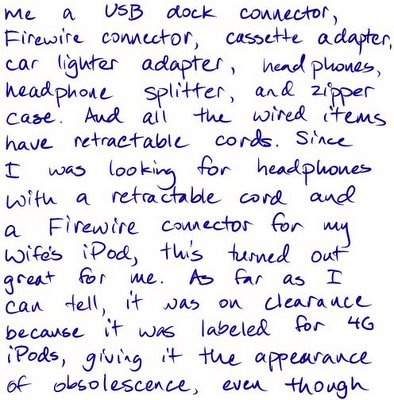 me a USB dock connector,
Firewire connector, cassette adapter,
car lighter adapter, headphones,
headphone splitter, and zipper
case. And all the wired items
have retractable cords. Since
I was looking for headphones
with a retractable cord and
a Firewire connector for my
wife's iPod, this turned out
great for me. As far as I
can tell, it was on clearance
because it was labeled for 4G
iPods, giving it the appearance
of obsolescence, even though